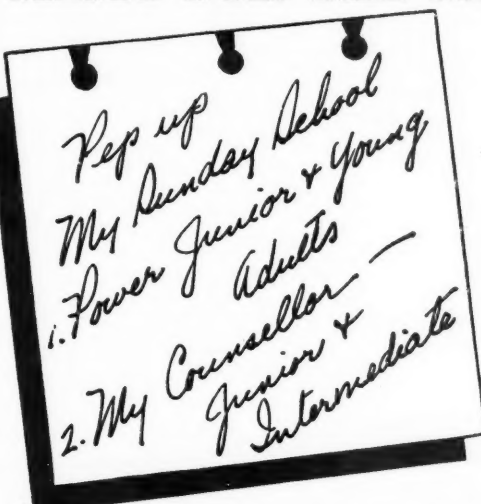 Pep up
My Sunday School
1. Power Junior & Young
Adults
2. My Counsellor —
Junior &
Intermediate